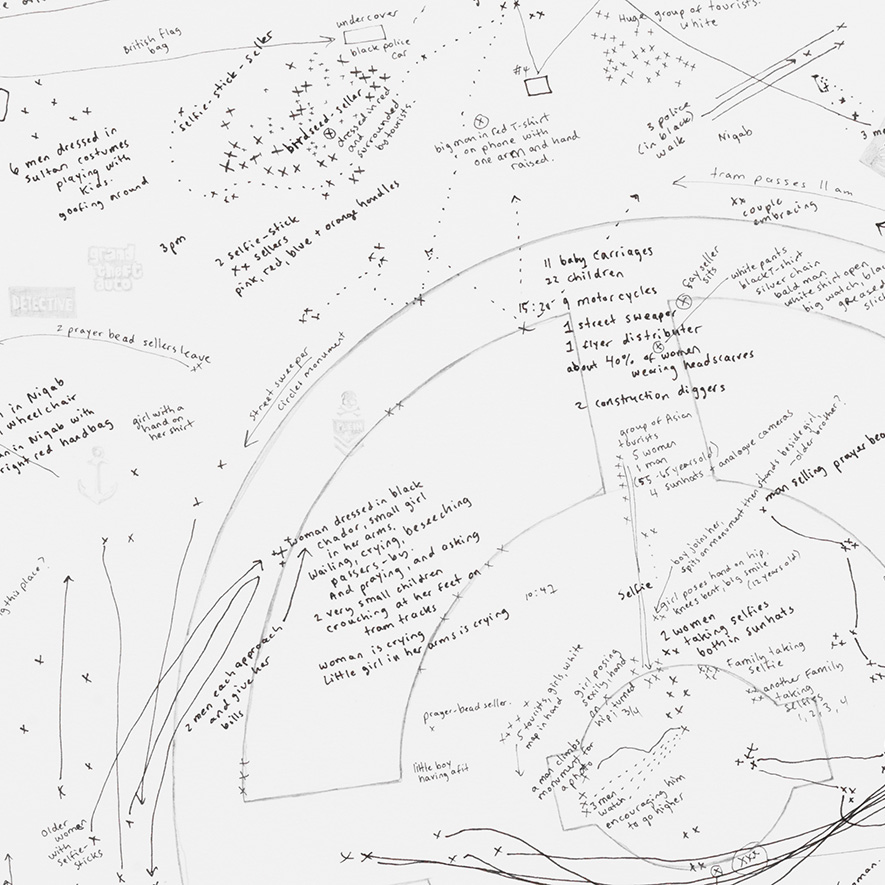 British flag
bag
undercover
black police
car
Huge group of tourists.
White
selfie-stick-seller
birdseed-seller
dressed in red
and
surrounded
by tourists.
#4
big man in red T-shirt
on phone with
one arm and hand
raised.
3 police
(in black)
walk
Niqab
6 men dressed in
sultan costumes
playing with
kids.
goofing around
tram passes 11 am
xx couple
embracing
3pm
2 selfie-stick
xx sellers
pink, red, blue + orange handles
grand
theft
auto
DETECTIVE
11 baby carriages
22 children
15:30
9 motorcycles
1 street sweeper
1 flyer distributer
about 40% of women
wearing headscarves
2 construction diggers
sits
white pants
black T-shirt
silver chain
bald man
white shirt open
big watch,
greased
slick
2 prayer bead sellers leave
street sweeper
circles monument
in Niqab
wheelchair
in Niqab with
right red handbag
girl with a
hand on
her shirt
group of Asian
tourists
5 women
1 man
(55-65 years old)
4 sunhats + analogue cameras
man selling prayer
boy joins her,
spits on monument then stands beside girl,
- older brother?
woman dressed in black
Chador, small girl
in her arms.
Wailing, crying, beseeching
passers-by.
And praying, and asking
2 very small children
crouching at her feet on
tram tracks
woman is crying
Little girl in her arms is crying
10:42
selfie
girl poses hand on hip,
knees bent, big smile
(12 years old)
2 women
xx taking selfies
both in sunhats
this place?
2 men each approach
and give her
bills
Family taking
selfie
another Family
taking
selfies
1, 2, 3, 4
prayer-bead seller.
5 tourists, girls, white
map in hand
girl posing
sexily, hand
on
hip, turned
3/4
little boy
having a fit
a man climbs
monument for
a photo
3 men
watch.
encouraging him
to go higher
Older
women
with
selfie-
sticks